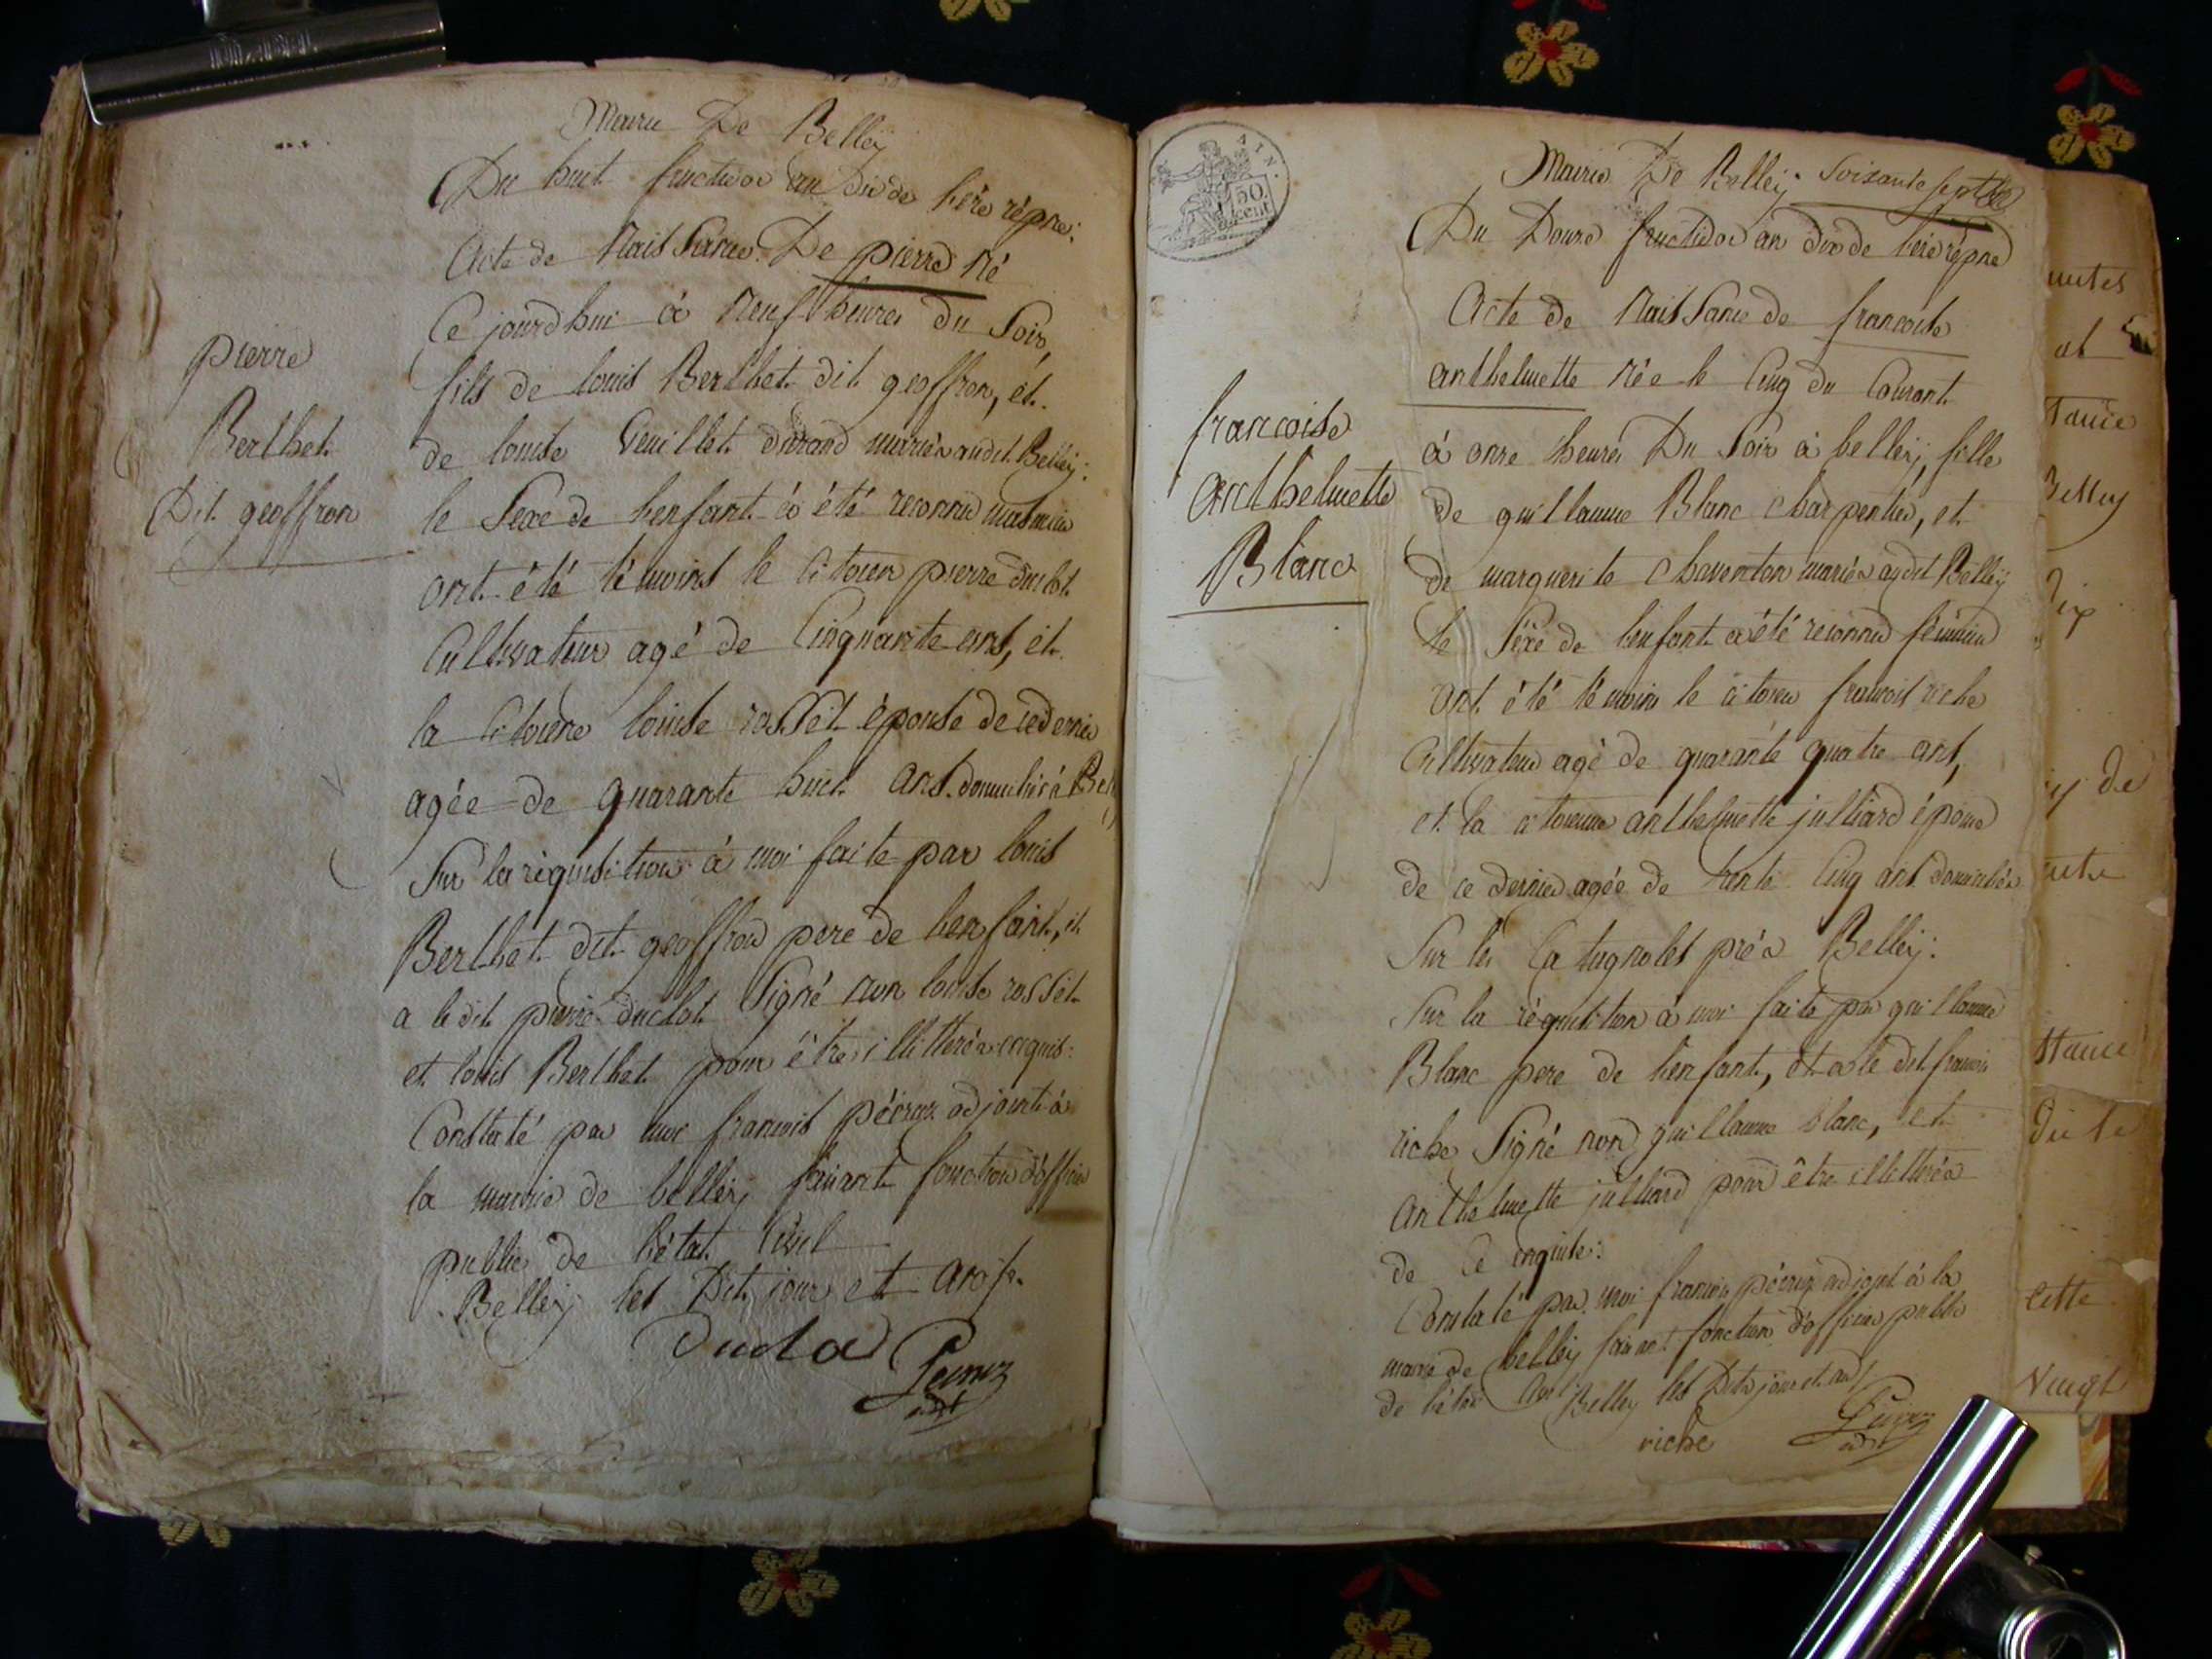 Mairie De Belley
Du huit fructidor an dix de l'ère répne:
Acte de Naissance De pierre né
Ce jourd'hui à Neuf heures du Soir,
fils de louis Berthet dit geoffron, et
de louise Veuillet mariés audit Belley:
le Sexe de lenfant a été reconnu masculin
ont été témoins le citoien pierre duclot
Cultivateur agé de Cinquante ans, et
la Citoiene louise rosset épouse de ce dernier
agée de quarante huit ans domiciliés à Belley
Sur la réquisition à moi faite par louis
Berthet dit geoffron pere de lenfant, et
a ledit pierre duclot Signé non louise rosset
et louis Berthet pour être illitterés enquis:
Constaté par moi francois péeruz adjoint à
la mairie de belley faisant fonction d'officier
public de l'état Civil
Belley les Dit jour et an
duclo
Peeruz
adjt
pierre
Berthet
Dit geoffron
AIN.
50
cent
Mairie De Belley. Soixante sept
Du Douze fructidor an dix de l'ère répne
Acte de Naissance de francoise
anthelmette née le Cinq du Courant
à onze heures Du Soir à belley, fille
de guillaume Blanc charpentier, et
de marguerite chaventon mariés audit Belley
le Sexe de lenfant a été reconnu féminin
ont été témoins le citoien francois riche
Cultivateur agé de quarante quatre ans,
et la citoienne anthelmette julliard épouse
de ce dernier agée de trente Cinq ans domiciliés
Sur les près Belley:
Sur la réquisition à moi faite par guillaume
Blanc pere de l'enfant, et a le dit francois
riche Signé non guillaume blanc, et
anthelmette julliard pour être illitterés
de Ce enquise:
Constaté par moi francois péeruz adjoint à la
mairie de belley faisant fonction d'officier public
de l'état Civil Belley les Dits jour et an
riche
Peeruz
adjt
francoise
anthelmette
Blanc
et
Belley
Dix
de
Cette
Vingt